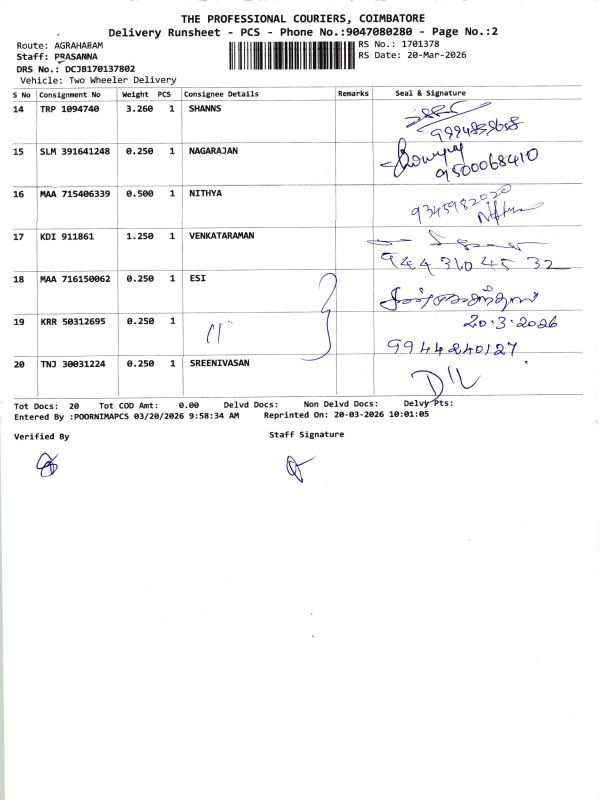 THE PROFESSIONAL COURIERS, COIMBATORE
Delivery Runsheet - PCS - Phone No.:9047080280 - Page No.:2
Route: AGRAHARAM
RS No.: 1701378
Staff: PRASANNA
RS Date: 20-Mar-2026
DRS No.: DCJB170137802
Vehicle: Two Wheeler Delivery
S No Consignment No Weight PCS Consignee Details Remarks Seal & Signature
14 TRP 1094740 3.260 1 SHANNS
15 SLM 391641248 0.250 1 NAGARAJAN
9500068410
16 MAA 715406339 0.500 1 NITHYA
9345982020
17 KDI 911861 1.250 1 VENKATARAMAN
944 310 45 32
18 MAA 716150062 0.250 1 ESI
19 KRR 50312695 0.250 1 20.3.2026
9944240127
20 TNJ 30031224 0.250 1 SREENIVASAN
D/L
Tot Docs: 20 Tot COD Amt: 0.00 Delvd Docs: Non Delvd Docs: Delvy Pts:
Entered By :POORNIMAPCS 03/20/2026 9:58:34 AM Reprinted On: 20-03-2026 10:01:05
Verified By Staff Signature